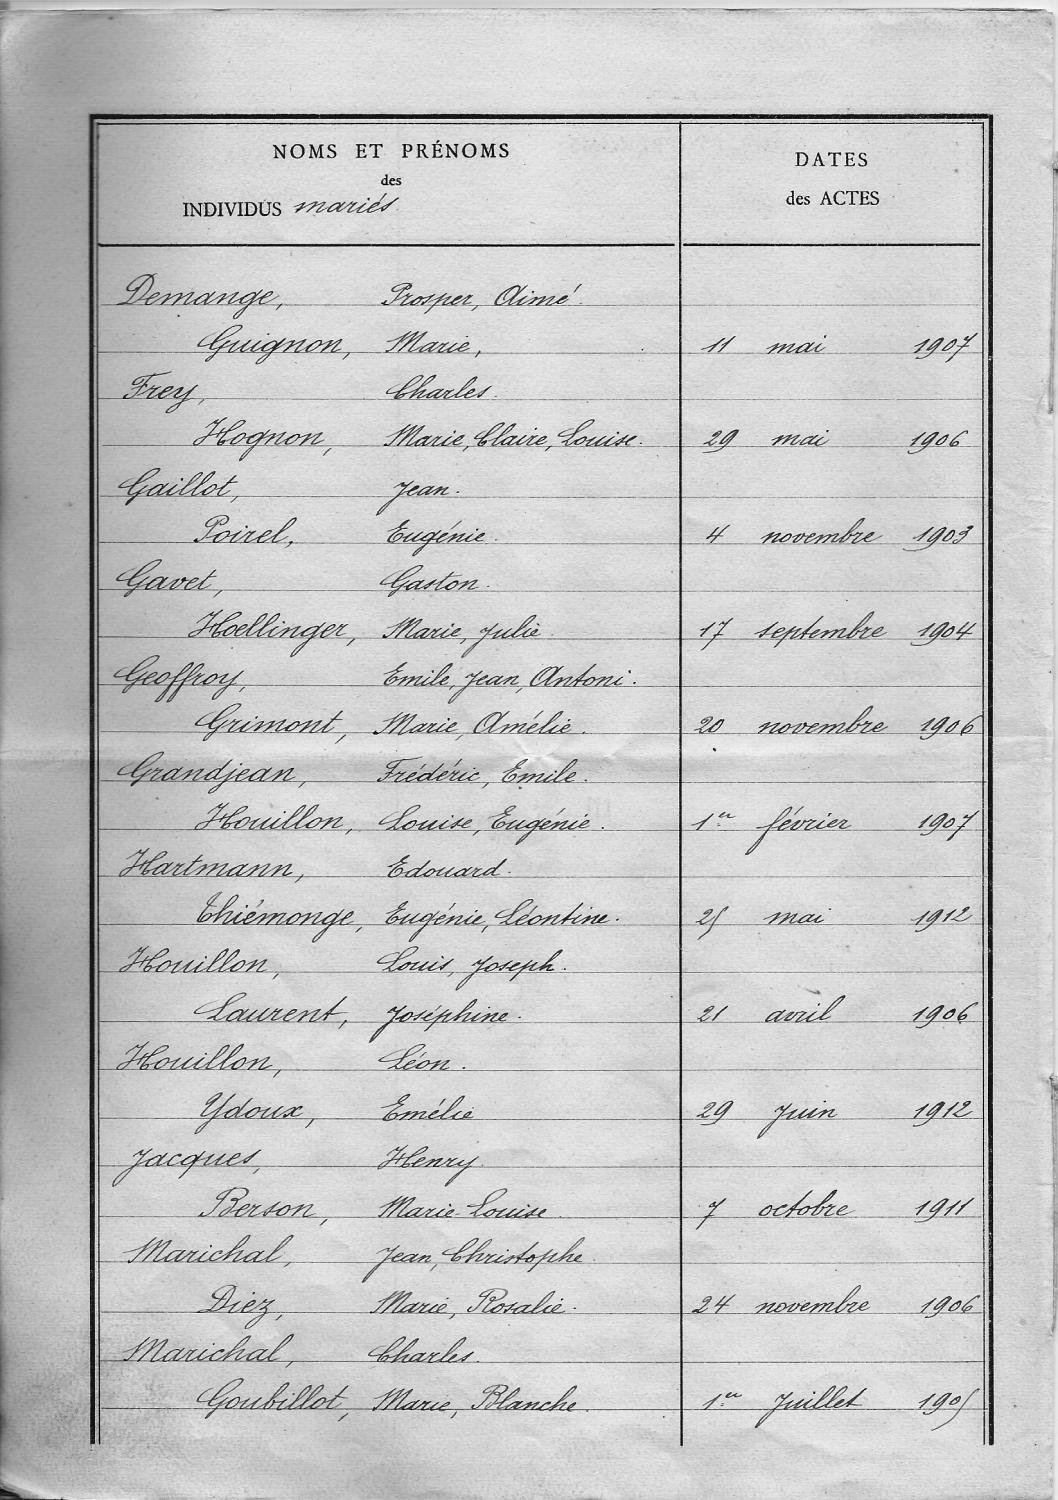 NOMS ET PRÉNOMS
des
INDIVIDUS mariés
DATES
des ACTES
Demange, Prosper, Aimé.
Guignon, Marie, 11 mai 1907
Frey, Charles.
Hognon, Marie, Claire, Louise. 29 mai 1906
Gaillot, Jean.
Poirel, Eugénie. 4 novembre 1903
Gavet, Gaston.
Hoellinger, Marie, Julie. 17 septembre 1904
Geoffroy, Emile, Jean, Antoni.
Grimont, Marie, Amélie. 20 novembre 1906
Grandjean, Frédéric, Emile.
Houillon, Louise, Eugénie. 1er février 1907
Hartmann, Edouard.
Thiémonge, Eugénie, Léontine. 25 mai 1912
Houillon, Louis, Joseph.
Laurent, Joséphine. 21 avril 1906
Houillon, Léon.
Ydoux, Emélie 29 Juin 1912
Jacques, Henry.
Berson, Marie-Louise. 7 octobre 1911
Marichal, Jean, Christophe.
Diez, Marie, Rosalie. 24 novembre 1906
Marichal, Charles.
Goubillot, Marie, Blanche. 1er Juillet 1905